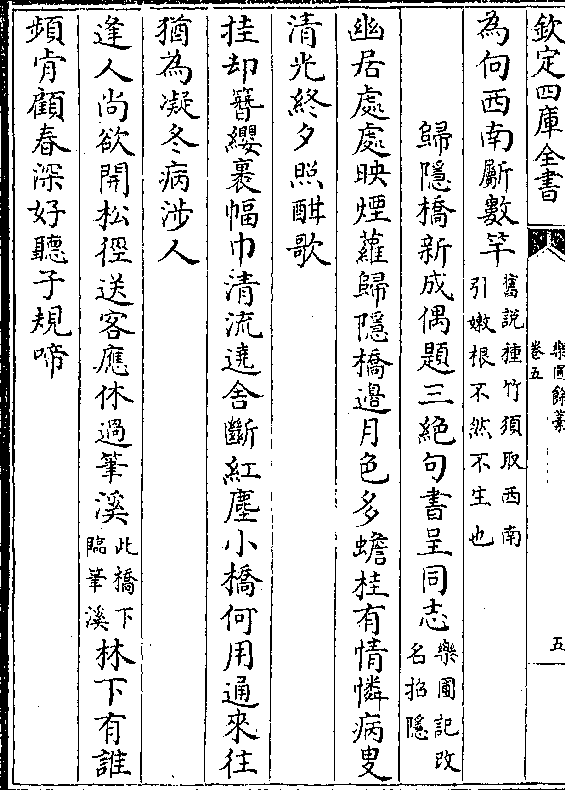 欽定四庫全書
樂圃餘藁
卷五
五
為向西南斸數竿舊說種竹須取西南
引嫩根不然不生也
歸隱橋新成偶題三絕句書呈同志樂圃記改
名招隱
幽居處處映煙蘿歸隱橋邊月色多蟾桂有情憐病叟
清光終夕照酣歌
挂却簪纓裹幅巾清流遶舍斷紅塵小橋何用通來往
猶為凝冬病涉人
逢人尚欲開松徑送客應休過筆溪此橋下
臨筆溪林下有誰
頻肯顧春深好聽子規啼